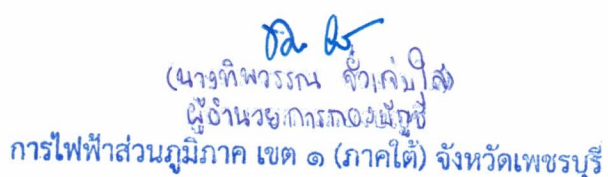 (นางทิพวรรณ
ผู้อำนวยการกองบัญชี
การไฟฟ้าส่วนภูมิภาค เขต ๑ (ภาคใต้) จังหวัดเพชรบุรี